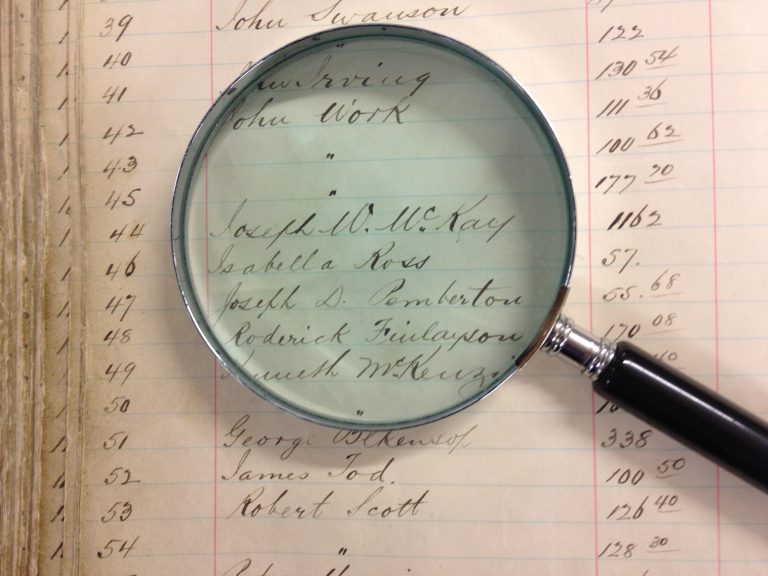 39 John Swanson 122
40 " 130 54
41 Irving 111 36
42 John Work 100 62
43 " 177 20
45 " 1162
44 Joseph W. McKay 57.
46 Isabella Ross 55.68
47 Joseph D. Pemberton 170 08
48 Roderick Finlayson
49 Kenneth McKenzie
50 "
51 George Blkensop 338
52 James Tod. 100 50
53 Robert Scott 126 40
54 " 128 30